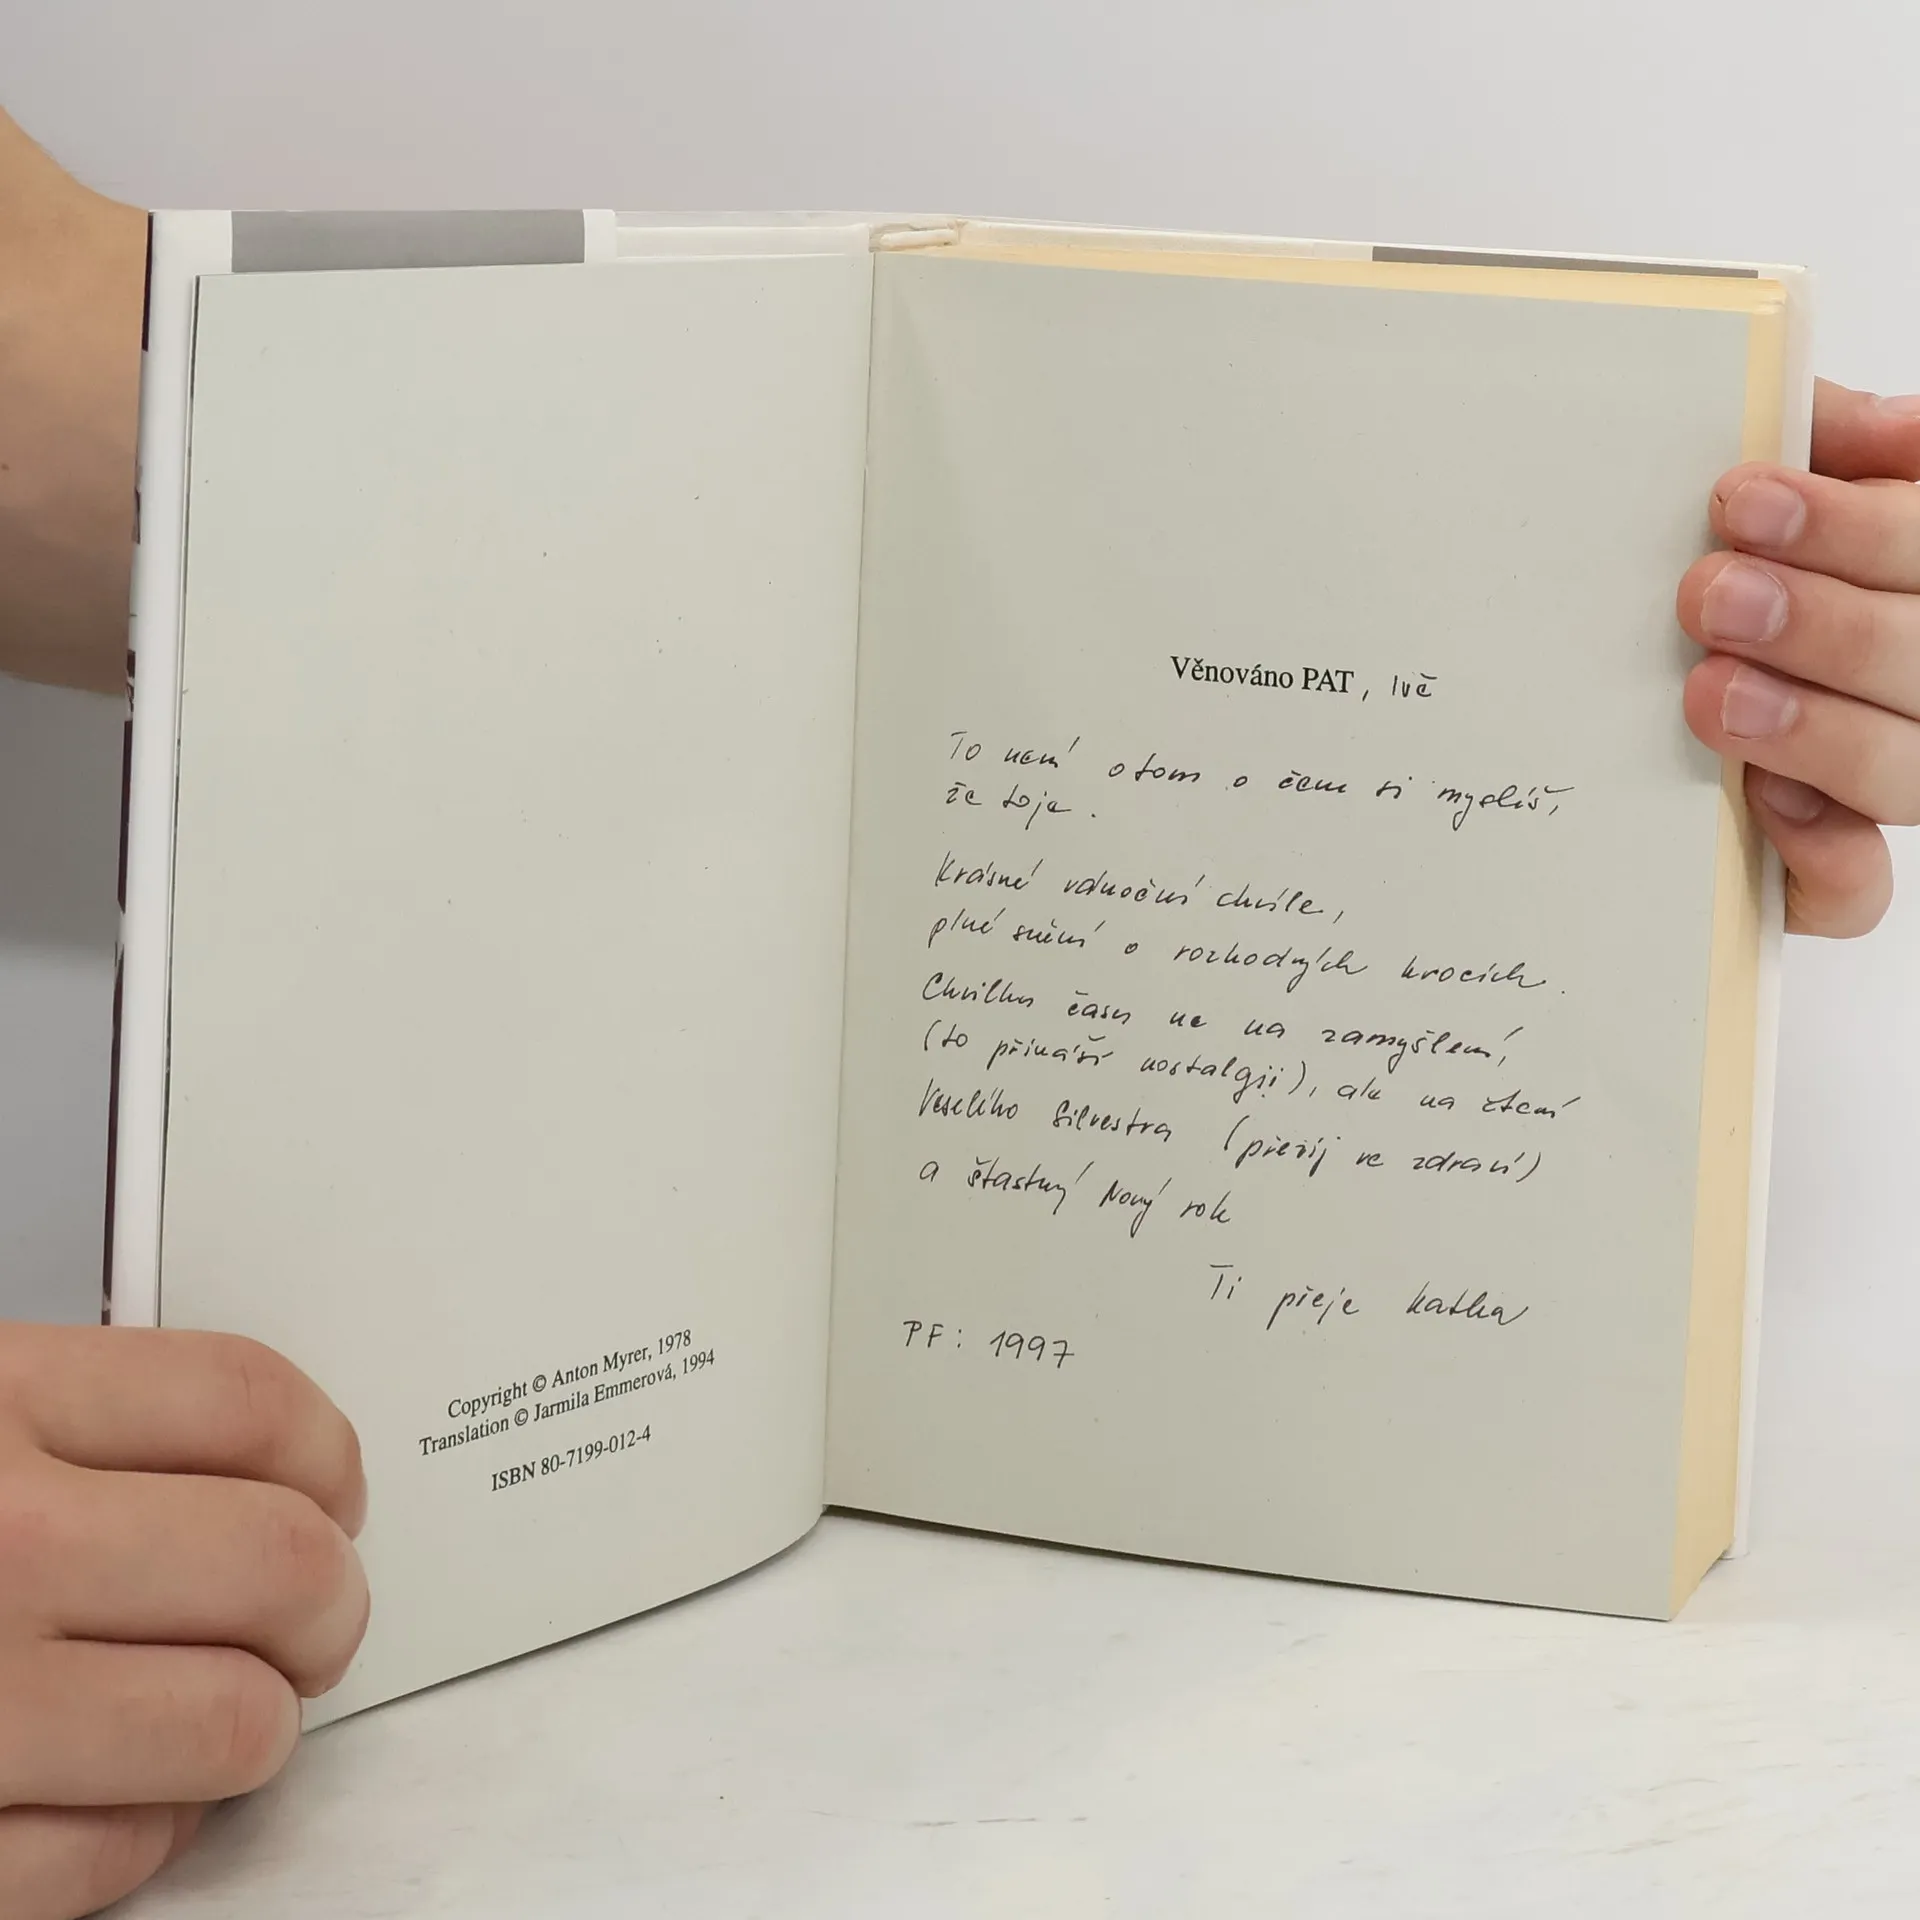 Copyright © Anton Myrer, 1978
Translation © Jarmila Emmerová, 1994
ISBN 80-7199-012-4
Věnováno PAT, Ivě
To není o tom o čem si myslíš,
že to je.
Krásné vánoční chvíle,
plné snění o rozhodných krocích.
Chvilku času ne na zamyšlení,
(to přináší nostalgii), ale na čtení
Veselého Silvestra (přežij ve zdraví)
a štastný Nový rok
Ti přeje Katka
PF: 1997